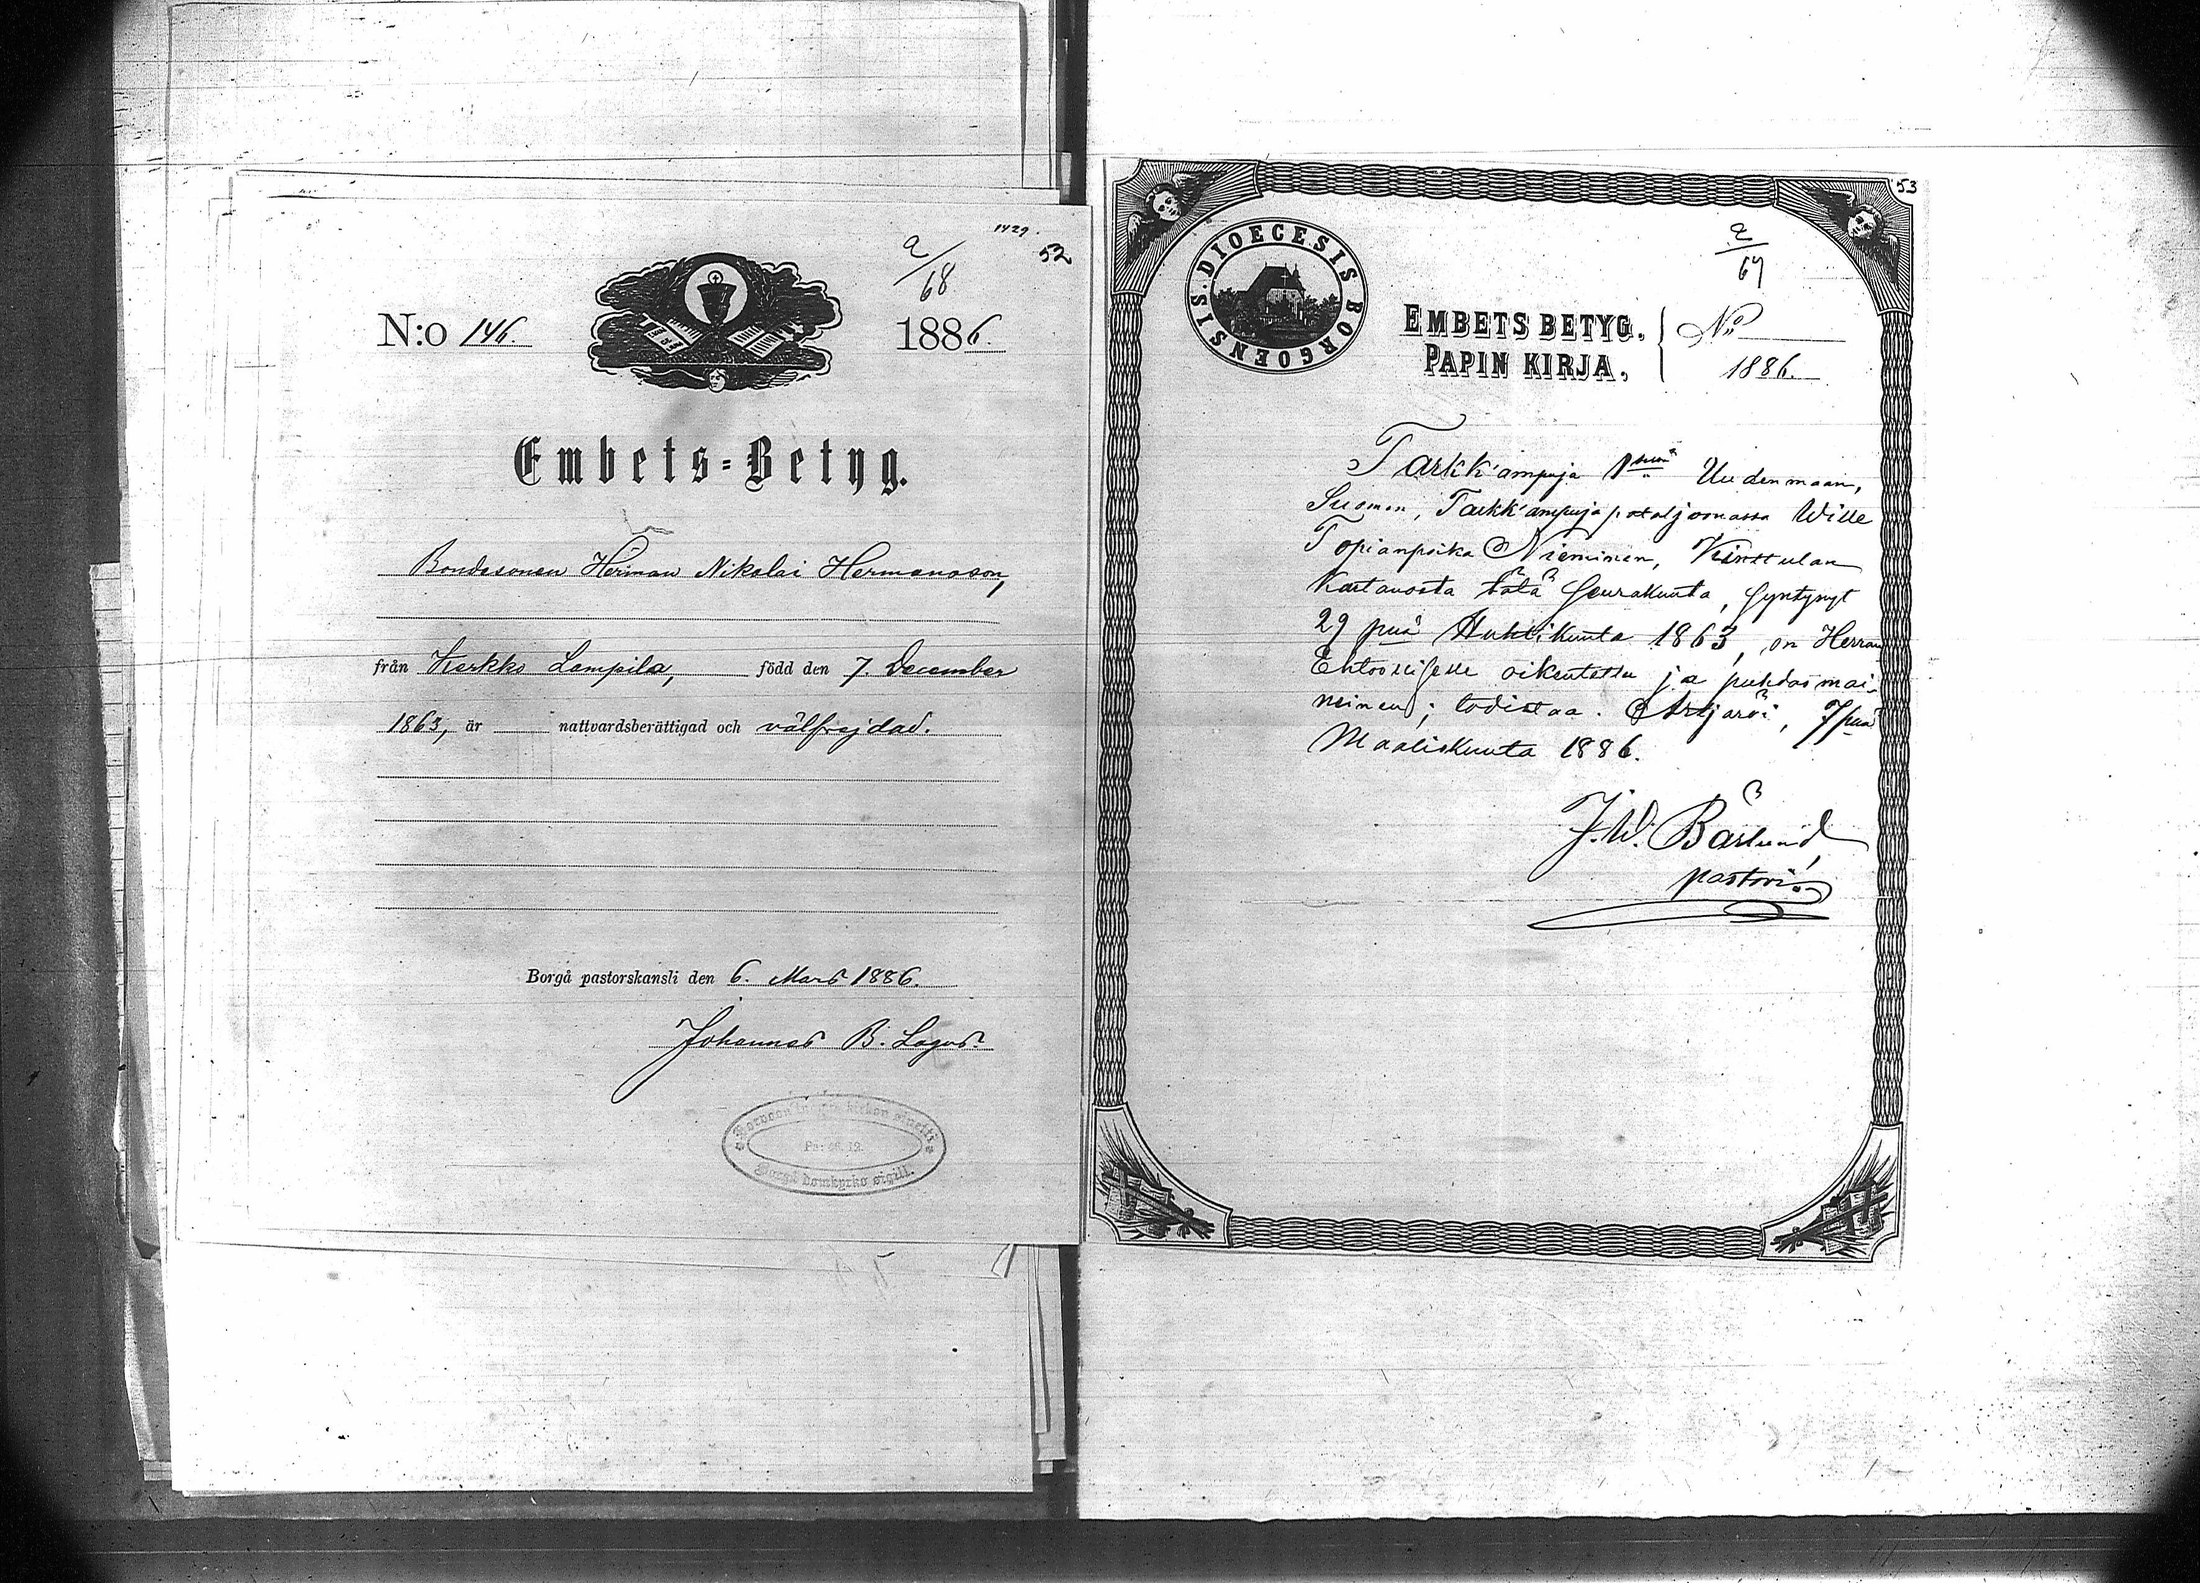 1429.
52
a/68
N:o 146.
1886.
Embets=Betyg.
Bondesonen Herman Nikolai Hermansson,
från Kerkko Lampila, född den 7. December
1863, är nattvardsberättigad och välfrejdad.
Borgå pastorskansli den 6. Mars 1886.
Johannes B. Lagus.
Borgå Domkyrko sigill.
53
a/67
S. DIOECESIS BORGOENSIS
EMBETS BETYG.
PAPIN KIRJA.
No
1886.
Tarkk'ampuja Uudenmaan,
Suomen, Tarkk'ampujapataljoonassa Wille
Topianpoika Nieminen,
Kartanosta tätä Seurakunta, syntynyt
29 pnä Huhtikuuta 1863, on Herran
Ehtoolliselle oikeutettu ja puhdasmai-
neinen; todistaa. Artjärvi, 7 pnä
Maaliskuuta 1886.
J.W. Bärlund
pastori.